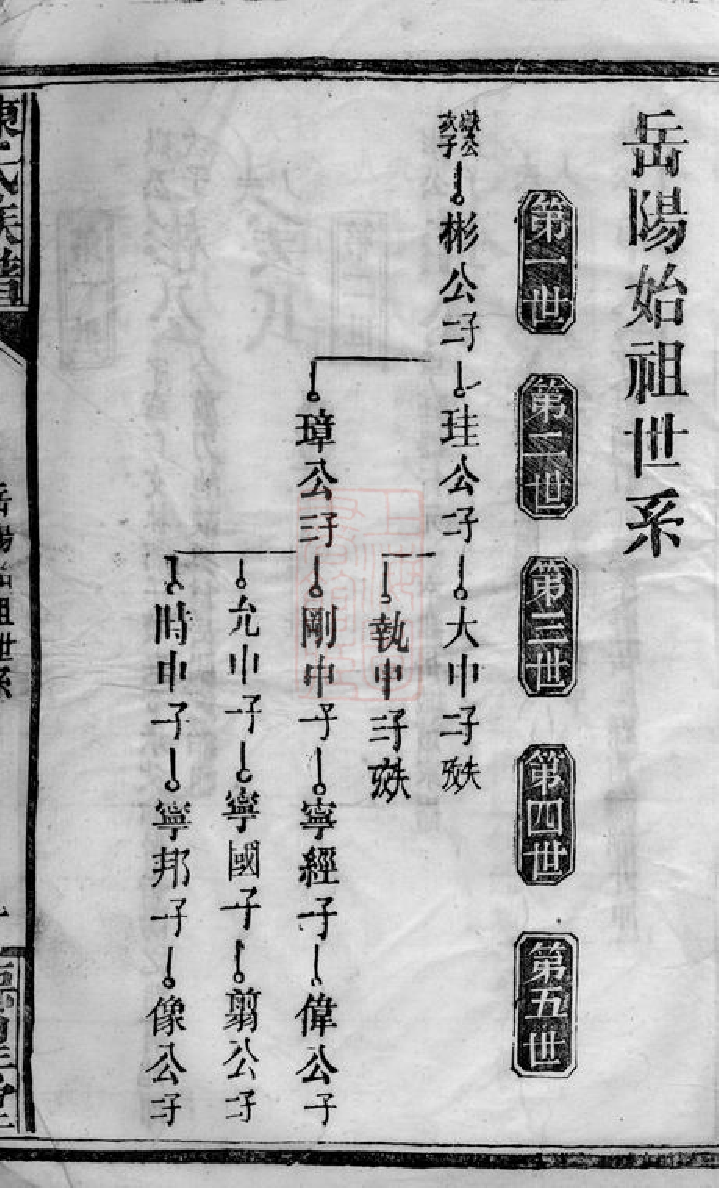 岳陽始祖世系
第一世
第二世
第三世
第四世
第五世
彬公二子 珪公二子 大中二子失攷
執中三子失攷
璋公三子 剛中一子 寧經一子 偉公一子
允中一子 寧國一子 翦公二子
時中一子 寧邦一子 像公二子
陳氏族譜
岳陽始祖世系